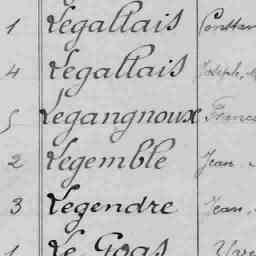 1 Legallais Constan
4 Legallais Joseph,
5 Legangnoux Franc
2 Legemble Jean
3 Legendre Jean,
1 Le Goas Yve